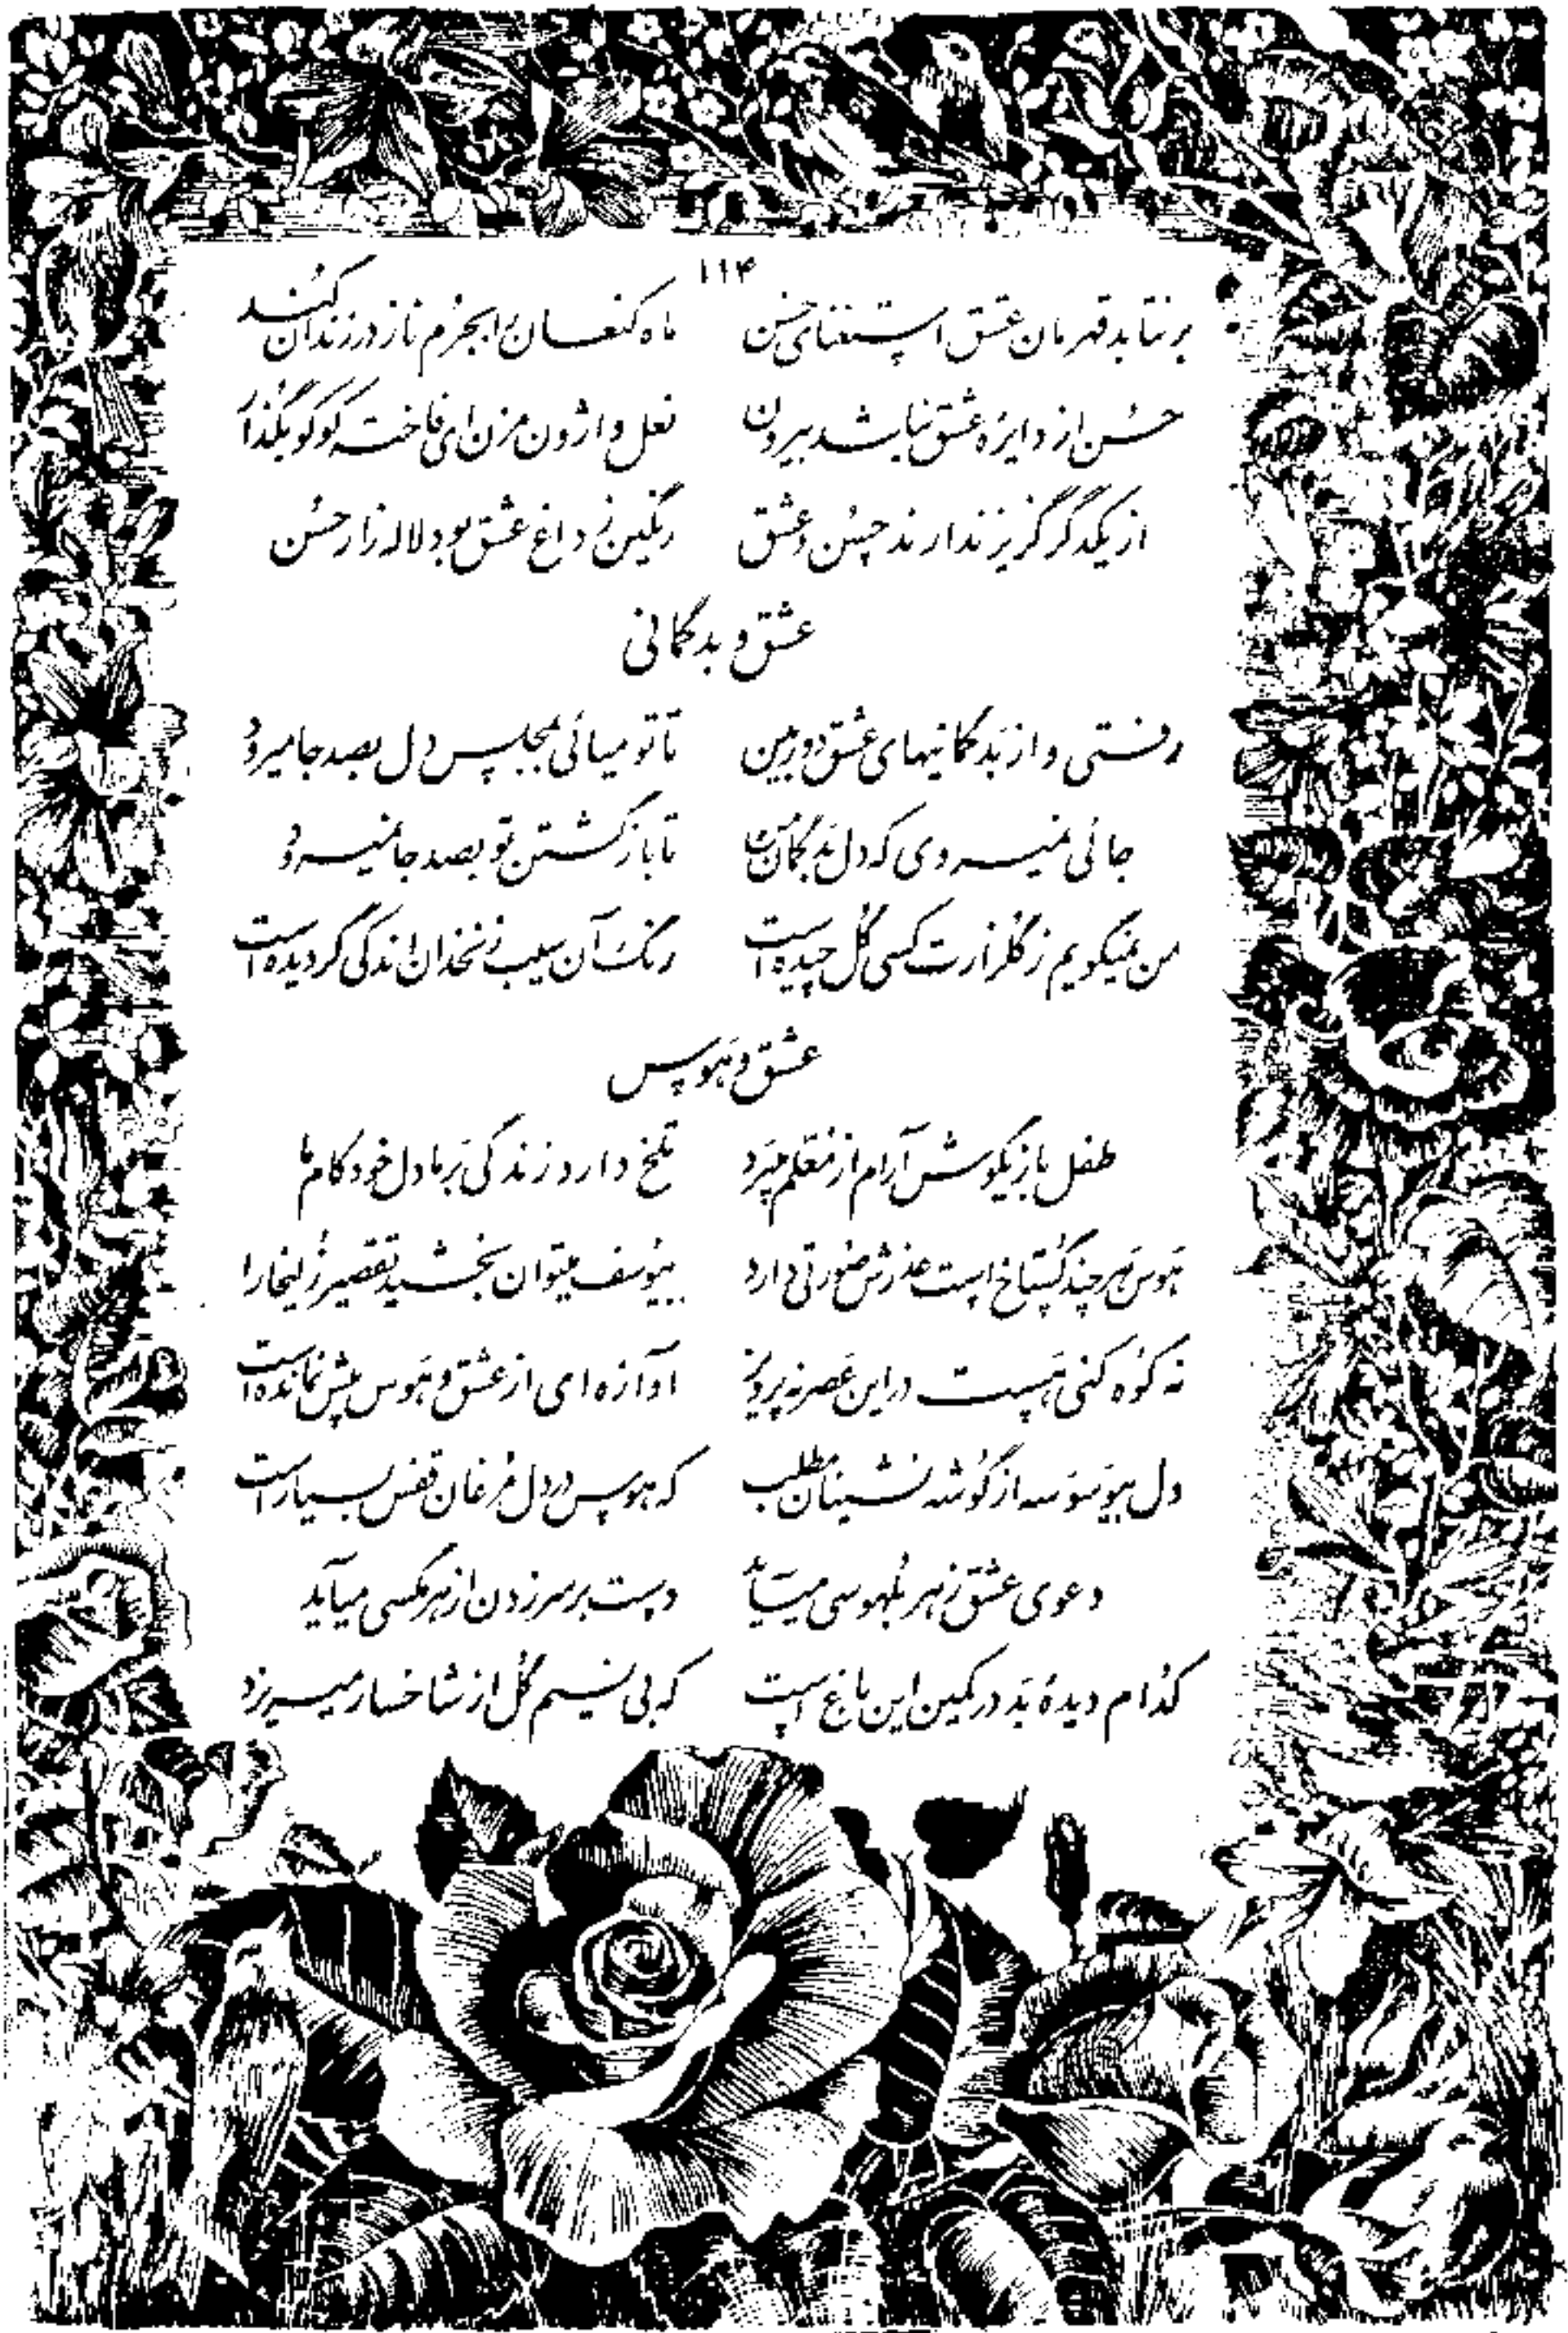 ۱۱۴
برنتابد قهرمان عشق استغنای حسن ماه کنعان را بجرم ناز در زندان کند
حسن از دایره عشق نباشد بیرون نعل واژون مزن ای فاخته کوکو بگذار
از یکدگر گریز ندارند حسن و عشق رنگین ز داغ عشق بود لاله زار حسن
عشق و بدگمانی
رفتی و از بدگمانیهای عشق دوربین تا تو میائی بمجلس دل بصد جا میرود
جائی نمیروی که دل بدگمان من تا بازگشتن تو بصد جا نمیرود
من نمیگویم ز گلزارت کسی گل چیده است رنگ آن سیب زنخدان اندکی گردیده است
عشق و هوس
طفل بازیگوش آرام از معلم میبرد تلخ دارد زندگی بر ما دل خودکام ما
هوس هر چند گستاخ است عذرش صورتی دارد بیوسف میتوان بخشید تقصیر زلیخا را
نه کوه کنی هست در این عصر نه پرویز آوازه ای از عشق و هوس بیش نمانده است
دل بیوسوسه از گوشه نشینان مطلب که هوس در دل مرغان قفس بسیار است
دعوی عشق ز هر بلهوسی میآید دست بر سر زدن از هر مگسی میآید
کدام دیدهٔ بد در کمین این باغ است که بی نسیم گل از شاخسار میریزد